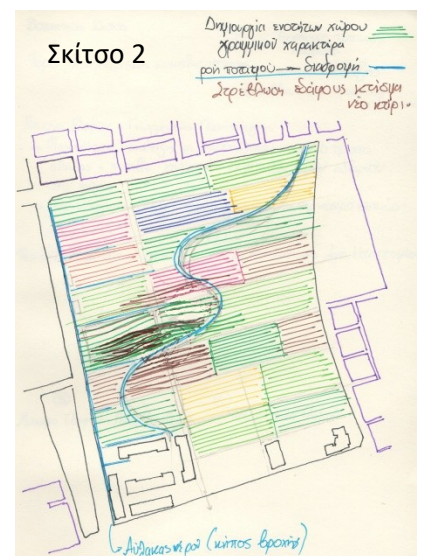 Σκίτσο 2
Δημιουργία ενοτήτων χώρου
γραμμικού χαρακτήρα
ροή ποταμού — διαδρομή
Στρέβλωση εδάφους κτίσμα
νέο κτίριο
Αύλακας νερού (κήπος βροχής)